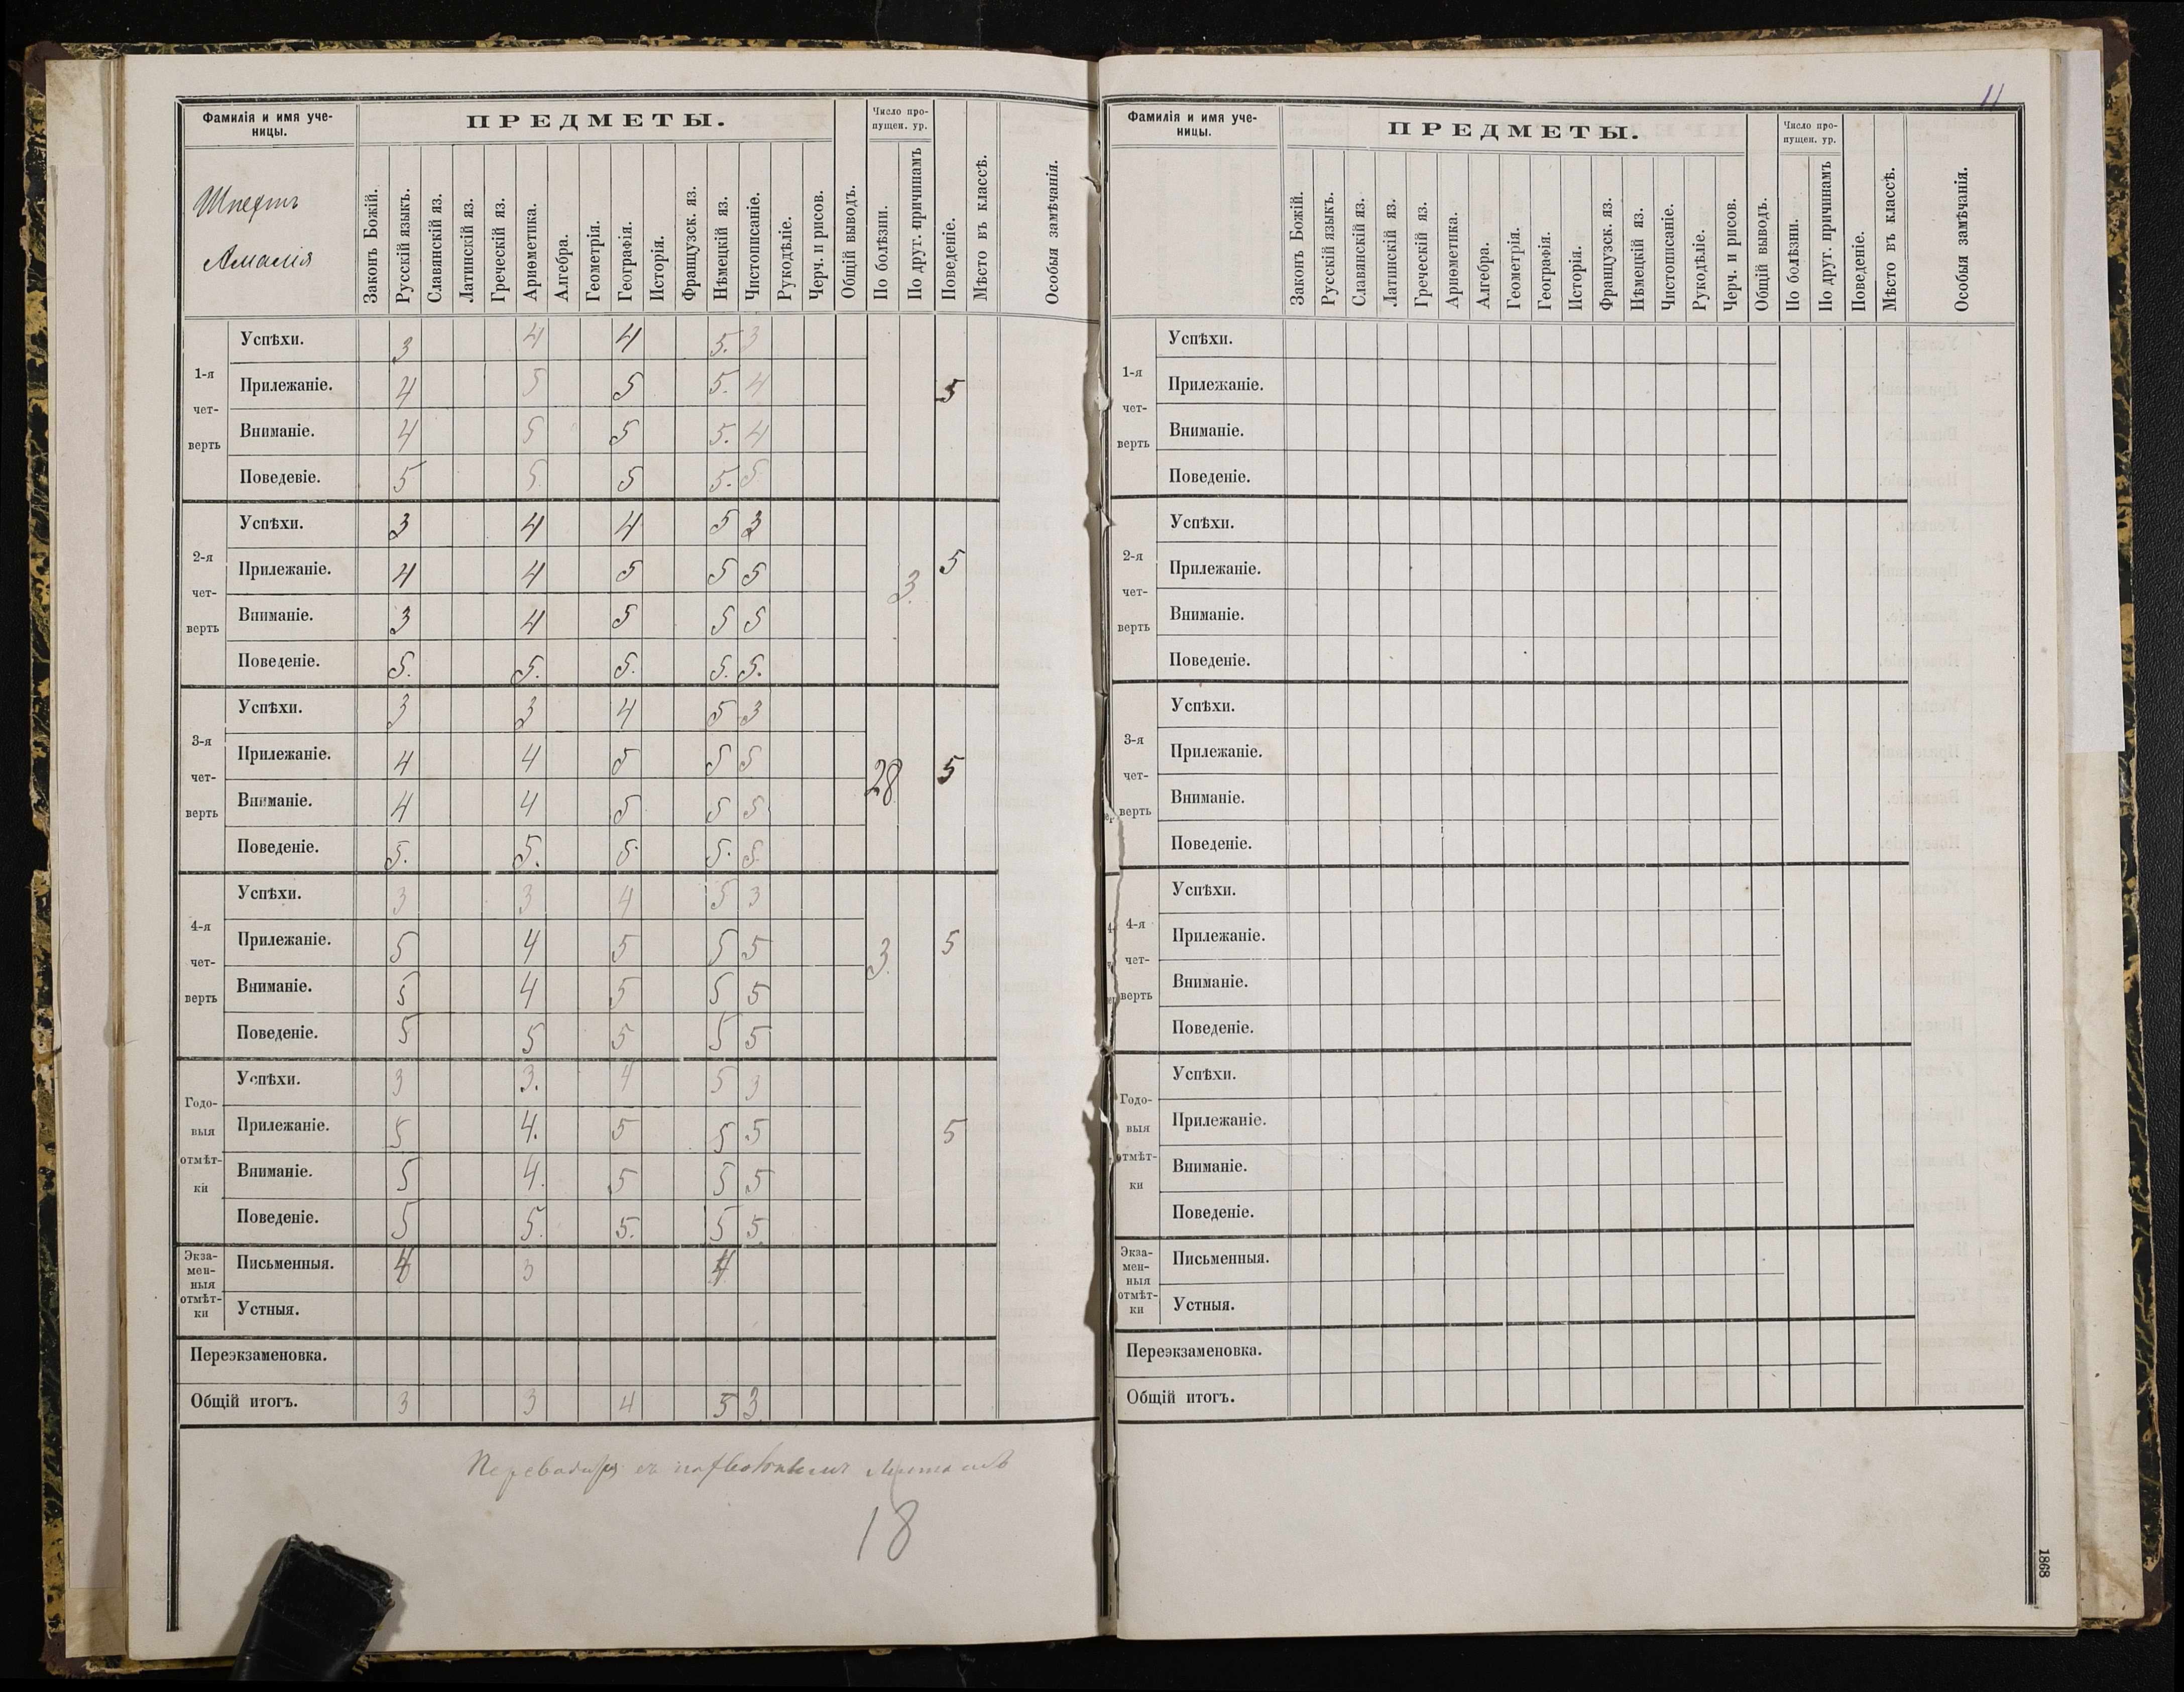 Фамилія и имя уче-
ницы.
ПРЕДМЕТЫ.
Число про-
пущен. ур.
Шпехтъ
Амалія
Законъ Божій.
Русскій языкъ.
Славянскій яз.
Латинскій яз.
Греческій яз.
Ариѳметика.
Алгебра.
Геометрія.
Географія.
Исторія.
Французск. яз.
Нѣмецкій яз.
Чистописаніе.
Рукодѣліе.
Черч. и рисов.
Общій выводъ.
По болѣзни.
По друг. причинамъ
Поведеніе.
Мѣсто въ классѣ.
Особыя замѣчанія.
1-я
чет-
верть
Успѣхи. 3 4 4 5. 3
Прилежаніе. 4 5 5 5. 4 5
Вниманіе. 4 5 5 5. 4
Поведеніе. 5 5 5 5. 5
2-я
чет-
верть
Успѣхи. 3 4 4 5 3
Прилежаніе. 4 4 5 5 5 3. 5
Вниманіе. 3 4 5 5 5
Поведеніе. 5. 5. 5. 5. 5.
3-я
чет-
верть
Успѣхи. 3 3 4 5 3
Прилежаніе. 4 4 5 5 5 28 5
Вниманіе. 4 4 5 5 5
Поведеніе. 5. 5. 5. 5. 5.
4-я
чет-
верть
Успѣхи. 3 3 4 5 3
Прилежаніе. 5 4 5 5 5 3. 5
Вниманіе. 5 4 5 5 5
Поведеніе. 5 5 5 5 5
Годо-
выя
отмѣт-
ки
Успѣхи. 3 3. 4 5 3
Прилежаніе. 5 4. 5 5 5 5
Вниманіе. 5 4. 5 5 5
Поведеніе. 5 5. 5. 5 5.
Экза-
мен-
ныя
отмѣт-
ки
Письменныя. 4 3 4
Устныя.
Переэкзаменовка.
Общій итогъ. 3 3 4 5 3
Переводится
18
11
Фамилія и имя уче-
ницы.
ПРЕДМЕТЫ.
Число про-
пущен. ур.
Законъ Божій.
Русскій языкъ.
Славянскій яз.
Латинскій яз.
Греческій яз.
Ариѳметика.
Алгебра.
Геометрія.
Географія.
Исторія.
Французск. яз.
Нѣмецкій яз.
Чистописаніе.
Рукодѣліе.
Черч. и рисов.
Общій выводъ.
По болѣзни.
По друг. причинамъ
Поведеніе.
Мѣсто въ классѣ.
Особыя замѣчанія.
1-я
чет-
верть
Успѣхи.
Прилежаніе.
Вниманіе.
Поведеніе.
2-я
чет-
верть
Успѣхи.
Прилежаніе.
Вниманіе.
Поведеніе.
3-я
чет-
верть
Успѣхи.
Прилежаніе.
Вниманіе.
Поведеніе.
4-я
чет-
верть
Успѣхи.
Прилежаніе.
Вниманіе.
Поведеніе.
Годо-
выя
отмѣт-
ки
Успѣхи.
Прилежаніе.
Вниманіе.
Поведеніе.
Экза-
мен-
ныя
отмѣт-
ки
Письменныя.
Устныя.
Переэкзаменовка.
Общій итогъ.
1868